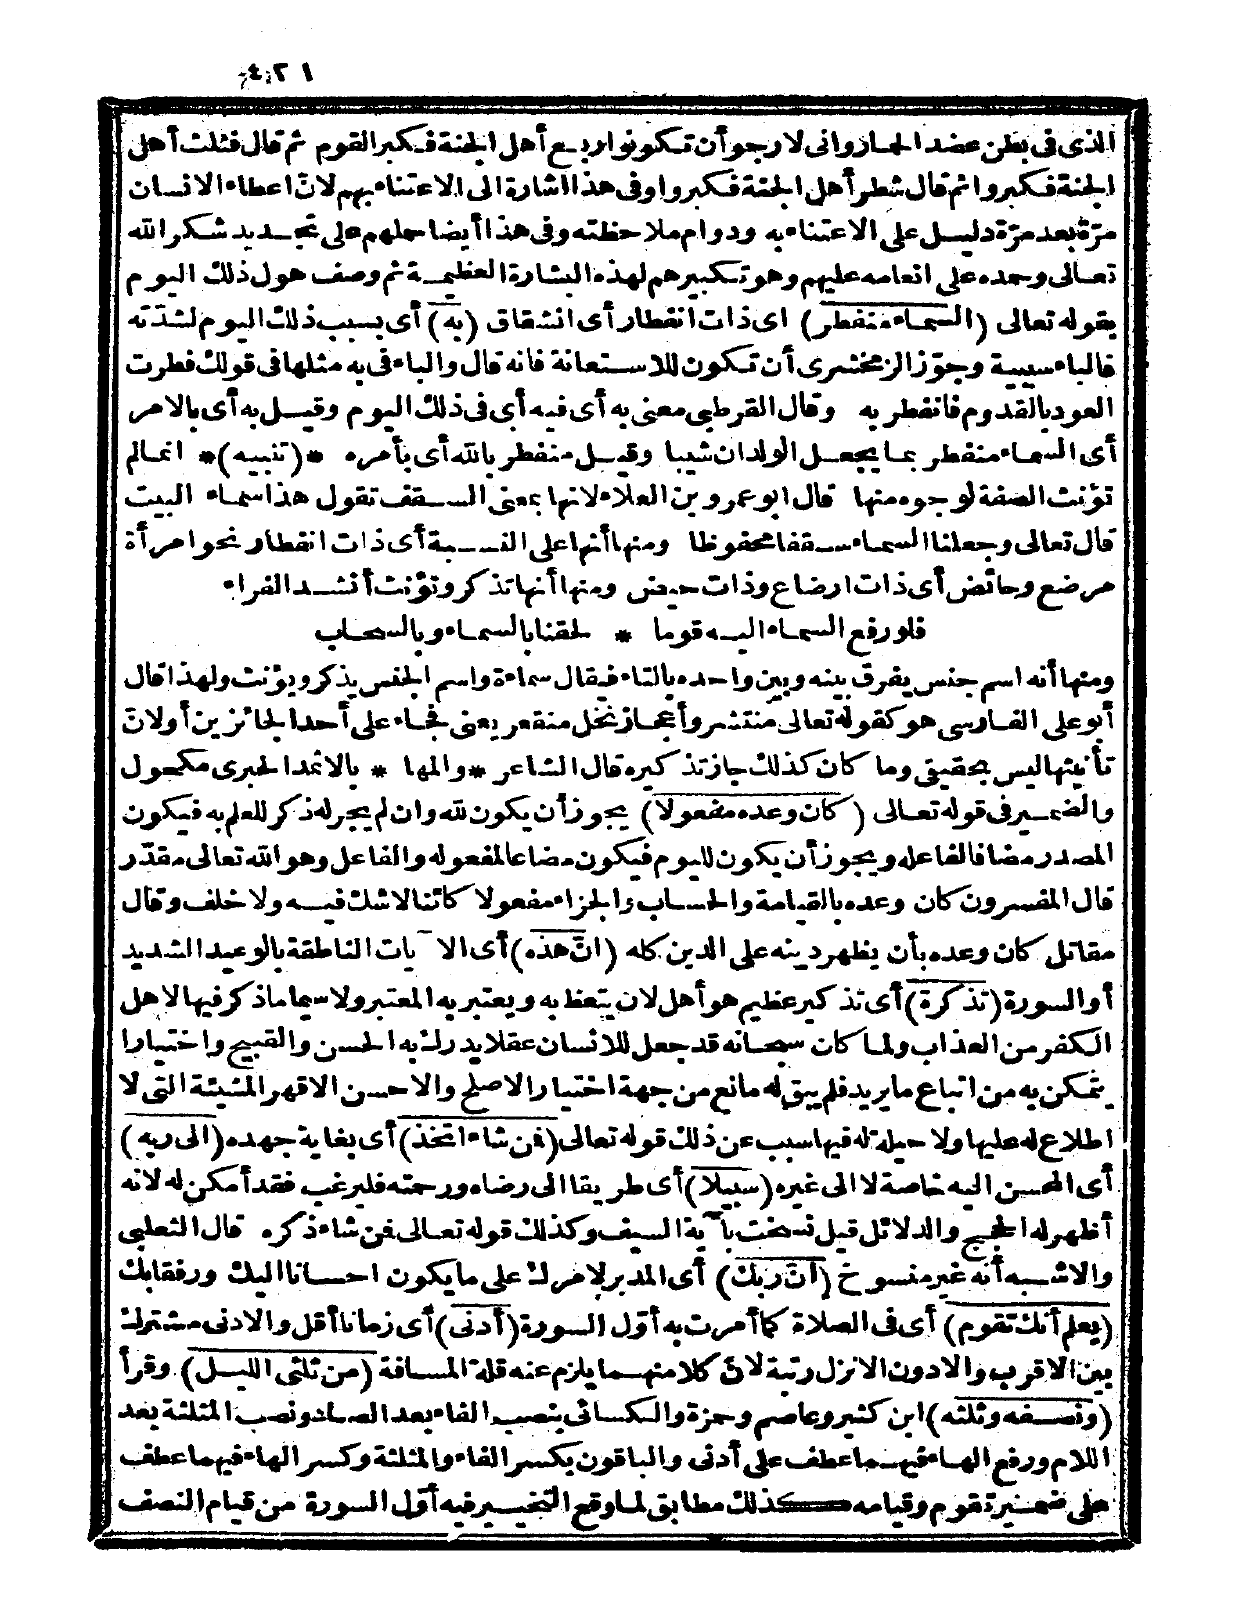 الذى فى بطن عضد الحمار وانى لارجو أن تكونوا ربع أهل الجنة فكبر القوم ثم قال فثلث أهل
الجنة فكبروا ثم قال شطر أهل الجنة فكبروا وفى هذا اشارة الى الاعتناء بهم لانّ اعطاء الانسان
مرّة بعد مرّة دليل على الاعتناء به ودوام ملاحظته وفى هذا أيضا حملهم على تجديد شكر الله
تعالى وحمده على انعامه عليهم وهو تكبيرهم لهذه البشارة العظيمة ثم وصف هول ذلك اليوم
بقوله تعالى (السماء منفطر) اى ذات انفطار أى انشقاق (به) أى بسبب ذلك اليوم لشدّته
فالباء سببية وجوّز الزمخشرى أن تكون للاستعانة فانه قال والباء فى به مثلها فى قولك فطرت
العود بالقدوم فانفطر به وقال القرطبى معنى به أى فيه أى فى ذلك اليوم وقيل به أى بالامر
أى السماء منفطر بما يجعل الولدان شيبا وقيل منفطر بالله أى بأمره *(تنبيه)* انما لم
تؤنث الصفة لوجوه منها قال ابو عمرو بن العلاء لانها بمعنى السقف تقول هذا سماء البيت
قال تعالى وجعلنا السماء سقفا محفوظا ومنها أنها على النسبة أى ذات انفطار نحو امرأة
مرضع وحائض أى ذات ارضاع وذات حيض ومنها أنها تذكر وتؤنث أنشد الفراء
فلو رفع السماء اليه قوما * لحقنا بالسماء وبالسحاب
ومنها أنه اسم جنس يفرق بينه وبين واحده بالتاء فيقال سماءة واسم الجنس يذكر ويؤنث ولهذا قال
أبو على الفارسى هو كقوله تعالى منتشر وأعجاز نخل منقعر يعنى فجاء على أحد الجائزين أولانّ
تأنيثها ليس بحقيقى وما كان كذلك جاز تذكيره قال الشاعر * والمها * بالاثمد الحبرى مكحول
والضمير فى قوله تعالى (كان وعده مفعولا) يجوز أن يكون لله وان لم يجر له ذكر للعلم به فيكون
المصدر مضافا لفاعله ويجوز أن يكون لليوم فيكون مضاعا لمفعوله والفاعل وهو الله تعالى مقدّر
قال المفسرون كان وعده بالقيامة والحساب والجزاء مفعولا كائنا لاشك فيه ولا خلف وقال
مقاتل كان وعده بأن يظهر دينه على الدين كله (انّ هذه) أى الآيات الناطقة بالوعيد الشديد
أو السورة (تذكرة) أى تذكير عظيم هو أهل لان يتعظ به ويعتبر به المعتبر ولا سيما ما ذكر فيها لاهل
الكفر من العذاب ولما كان سبحانه قد جعل للانسان عقلا يدرك به الحسن والقبيح واختيارا
يتمكن به من اتباع ما يريد فلم يبق له مانع من جهة اختيار الاصلح والاحسن الا قهر المشيئة التى لا
اطلاع له عليها ولا حيلة له فيها سبب عن ذلك قوله تعالى (فمن شاء اتخذ) أى بغاية جهده (الى ربه)
أى المحسن اليه خاصة لا الى غيره (سبيلا) أى طريقا الى رضاه ورحمته فليرغب فقد أمكن له لانه
أظهر له الحجج والدلائل قيل نسخت بآية السيف وكذلك قوله تعالى فمن شاء ذكره قال الثعلبى
والاشبه أنه غير منسوخ (انّ ربك) أى المدبر لامرك على ما يكون احسانا اليك ورفقا بك
(يعلم أنك تقوم) أى فى الصلاة كما أمرت به أوّل السورة (أدنى) أى زمانا أقل والادنى مشترك
بين الاقرب والادون الانزل رتبة لانّ كلا منهما يلزم عنه قلة المسافة (من ثلثى الليل) وقرأ
(ونصفه وثلثه) ابن كثير وعاصم وحمزة والكسائى بنصب الفاء بعد الصاد ونصب المثلثة بعد
اللام ورفع الهاء فيهما عطف على أدنى والباقون بكسر الفاء والمثلثة وكسر الهاء فيهما عطف
على ضمير تقوم وقيامه كذلك مطابق لما وقع التخيير فيه أوّل السورة من قيام النصف